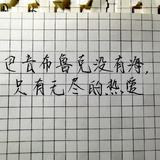 巴音布鲁克没有海，
只有无尽的热爱